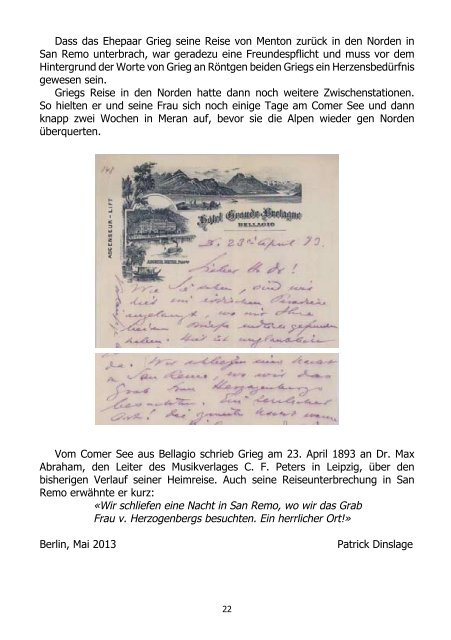 Dass das Ehepaar Grieg seine Reise von Menton zurück in den Norden in
San Remo unterbrach, war geradezu eine Freundespflicht und muss vor dem
Hintergrund der Worte von Grieg an Röntgen beiden Griegs ein Herzensbedürfnis
gewesen sein.
Griegs Reise in den Norden hatte dann noch weitere Zwischenstationen.
So hielten er und seine Frau sich noch einige Tage am Comer See und dann
knapp zwei Wochen in Meran auf, bevor sie die Alpen wieder gen Norden
überquerten.
ASCENSEUR - LIFT
Hôtel Grande-Bretagne
BELLAGIO
23 April 93.
Lieber Hr Dr!
Wie Sie sehen, sind wir
hier im irdischen Paradiese
angelangt, wo wir Ihre
beiden Briefe gefunden
haben. Hier ist unglaublich
da. Wir schliefen eine Nacht
in San Remo, wo wir das
Grab Frau Herzogenbergs
besuchten. Ein herrlicher
Ort! Die zweite Nacht waren
Vom Comer See aus Bellagio schrieb Grieg am 23. April 1893 an Dr. Max
Abraham, den Leiter des Musikverlages C. F. Peters in Leipzig, über den
bisherigen Verlauf seiner Heimreise. Auch seine Reiseunterbrechung in San
Remo erwähnte er kurz:
«Wir schliefen eine Nacht in San Remo, wo wir das Grab
Frau v. Herzogenbergs besuchten. Ein herrlicher Ort!»
Berlin, Mai 2013 Patrick Dinslage
22